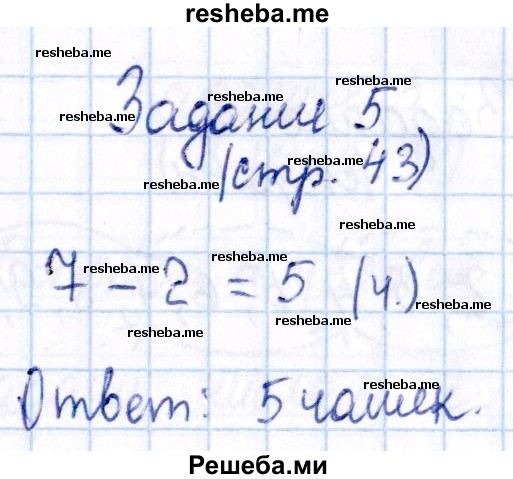 resheba.me
resheba.me
resheba.me
resheba.me
resheba.me
Задание 5
resheba.me
resheba.me
(стр. 43)
resheba.me
resheba.me
resheba.me
7 - 2 = 5 (ч.)
resheba.me
resheba.me
resheba.me
resheba.me
Ответ: 5 чашек.
Решеба.ми